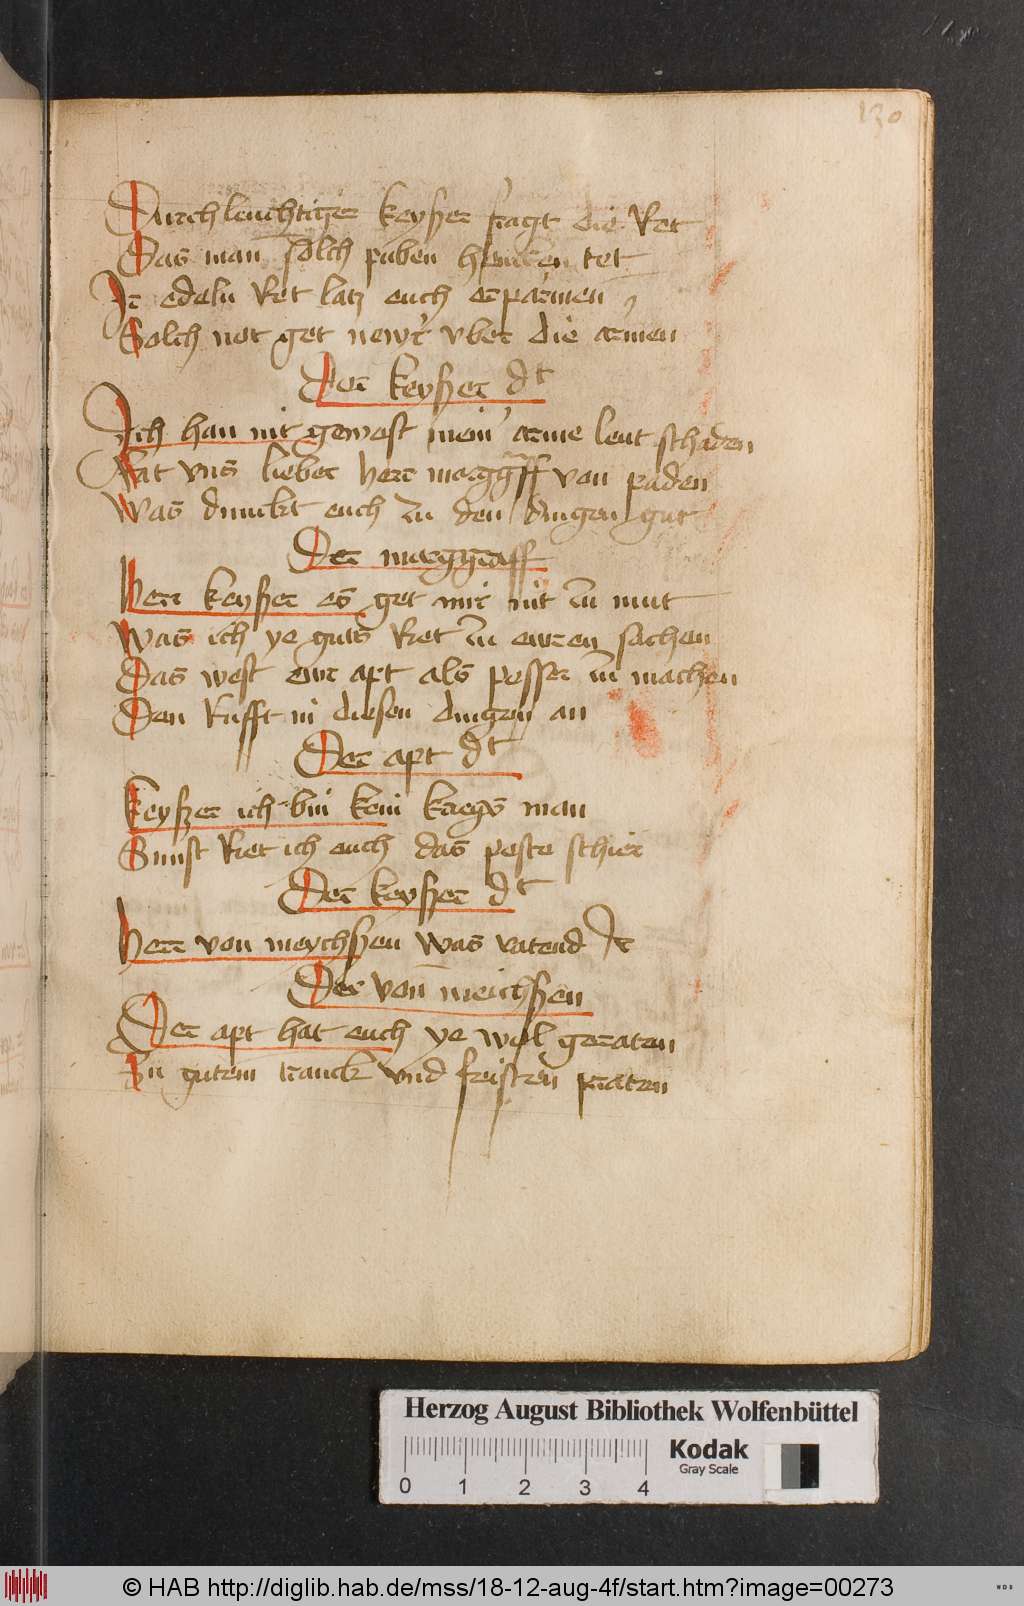 130
Durchleuchtiger keyßer fragt die Ret
Das man solch puben hencken tet
Ir edeln Ret latz euch erparmen
Solch not get newr vber die armen
Der keyßer dt
Ich han nit gewest mein arme leut schaden
Rat vns lieber herr marggraff von paden
Was dunckt euch zu den dingen gut
Der marggraff
Herr keyßer es get mir nit zu mut
Was ich ye guts Ret zu ewren sachen
Das west ewr apt als pesser zu machen
Den Rufft in diesen dingen an
Der apt dt
Keyßer ich bin kein kriegs man
Sunst Riet ich euch das peste schier
Der keyßer dt
Herr von meychßen was ratend Ir
Der von meichßen
Der apt hat euch ye wol geraten
Zu gutem tranck vnd feisten praten
Herzog August Bibliothek Wolfenbüttel
Kodak
Gray Scale
0 1 2 3 4
© HAB http://diglib.hab.de/mss/18-12-aug-4f/start.htm?image=00273